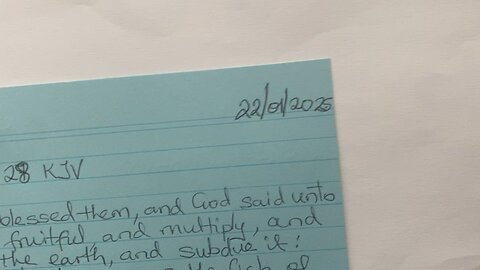 22/01/2025
28 KJV
blessed them, and God said unto
fruitful and multiply, and
the earth, and subdue it:
fish of